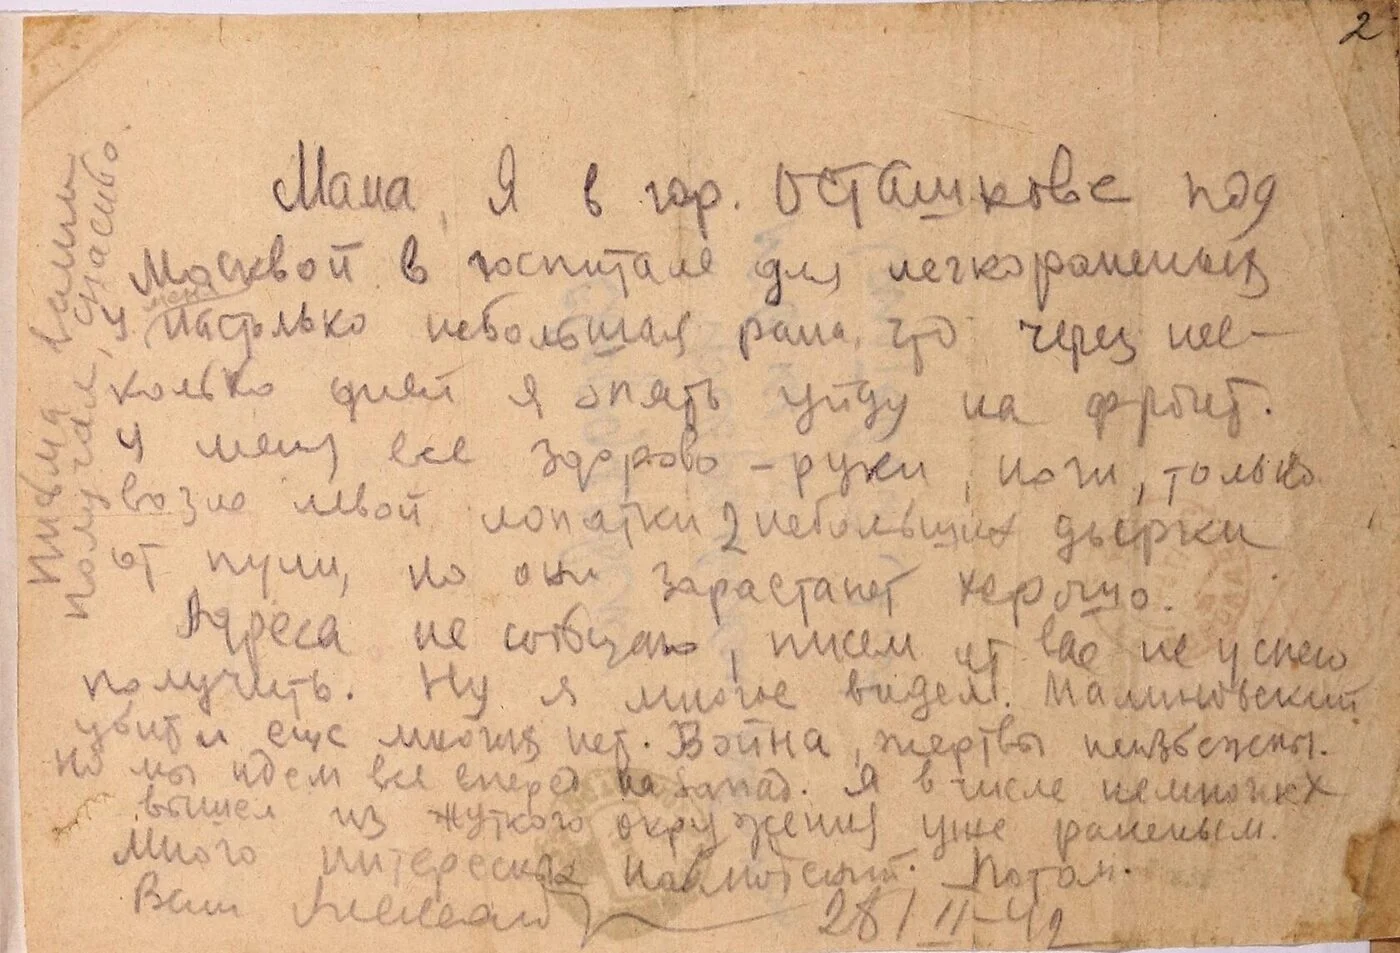 2
Мама, Я в гор. ОСТАШКОВЕ под
Москвой в госпитале для легкораненых
У меня настолько небольшая рана, что через нес-
колько дней я опять уйду на фронт.
У меня все здорово - руки, ноги, только
возле левой лопатки 2 небольших дырки
от пули, но они зарастают хорошо.
Адреса не сообщаю, писем от вас не успею
получить. Ну я многое видел. Малиновский
убит и еще многих нет. Война, жертвы неизбежны.
Но мы идем все вперед на запад. Я в числе немногих
вышел из жуткого окружения уже раненым.
Много интересных наблюдений. Потом.
Ваш
28/II-42
Письма ваши
получал, спасибо.